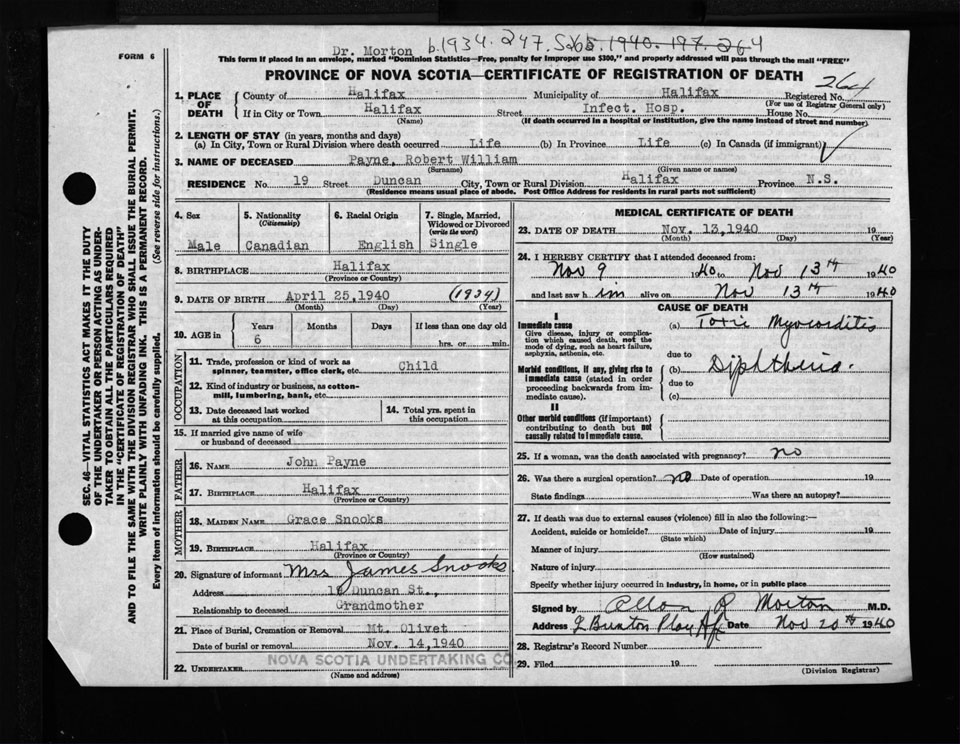 Dr. Morton b.1934. 247. S265. 1940. 197. 264
FORM 6
This form if placed in an envelope, marked "Dominion Statistics—Free, penalty for improper use $300," and properly addressed will pass through the mail "FREE"
PROVINCE OF NOVA SCOTIA—CERTIFICATE OF REGISTRATION OF DEATH
264
1. PLACE OF DEATH
County of Halifax Municipality of Halifax Registered No.
(For use of Registrar General only)
If in City or Town Halifax Street Infect. Hosp. House No.
(Name) (If death occurred in a hospital or institution, give the name instead of street and number)
2. LENGTH OF STAY (in years, months and days)
(a) In City, Town or Rural Division where death occurred Life (b) In Province Life (c) In Canada (if immigrant)
3. NAME OF DECEASED Payne, Robert William
(Surname) (Given name or names)
RESIDENCE No. 19 Street Duncan City, Town or Rural Division Halifax Province N.S.
(Residence means usual place of abode. Post Office Address for residents in rural parts not sufficient)
4. Sex
Male
5. Nationality
(Citizenship)
Canadian
6. Racial Origin
English
7. Single, Married, Widowed or Divorced
(write the word)
Single
8. BIRTHPLACE Halifax
(Province or Country)
9. DATE OF BIRTH April 25, 1940 (1934)
(Month) (Day) (Year)
10. AGE in
Years Months Days If less than one day old
6 hrs. or min.
OCCUPATION
11. Trade, profession or kind of work as
spinner, teamster, office clerk, etc. Child
12. Kind of industry or business, as cotton-
mill, lumbering, bank, etc.
13. Date deceased last worked
at this occupation
14. Total yrs. spent in
this occupation
15. If married give name of wife
or husband of deceased
FATHER
16. NAME John Payne
17. BIRTHPLACE Halifax
(Province or Country)
MOTHER
18. MAIDEN NAME Grace Snooks
19. BIRTHPLACE Halifax
(Province or Country)
20. Signature of informant Mrs James Snooks
Address 19 Duncan St.,
Relationship to deceased Grandmother
21. Place of Burial, Cremation or Removal Mt. Olivet
Date of burial or removal Nov. 14, 1940
22. UNDERTAKER NOVA SCOTIA UNDERTAKING CO
(Name and address)
MEDICAL CERTIFICATE OF DEATH
23. DATE OF DEATH Nov. 13, 1940 19
(Month) (Day) (Year)
24. I HEREBY CERTIFY that I attended deceased from:
Nov 9 1940 to Nov 13th 1940
and last saw him alive on Nov 13th 1940
CAUSE OF DEATH
I
Immediate cause
Give disease, injury or complica-
tion which caused death, not the
mode of dying, such as heart failure,
asphyxia, asthenia, etc.
(a) Toxic Myocarditis
due to
Morbid conditions, if any, giving rise to
immediate cause (stated in order
proceeding backwards from im-
mediate cause).
(b) Diphtheria.
due to
(c)
II
Other morbid conditions (if important)
contributing to death but not
causally related to immediate cause.
25. If a woman, was the death associated with pregnancy? no
26. Was there a surgical operation? no Date of operation 19
State findings Was there an autopsy?
27. If death was due to external causes (violence) fill in also the following:—
Accident, suicide or homicide? Date of injury 19
(State which)
Manner of injury
(How sustained)
Nature of injury
Specify whether injury occurred in industry, in home, or in public place
Signed by Allan R Morton M.D.
Address Date Nov 20th 1940
28. Registrar's Record Number
29. Filed 19
(Division Registrar)
SEC. 46—VITAL STATISTICS ACT MAKES IT THE DUTY
OF THE UNDERTAKER OR PERSON ACTING AS UNDER-
TAKER TO OBTAIN ALL THE PARTICULARS REQUIRED
IN THE "CERTIFICATE OF REGISTRATION OF DEATH"
AND TO FILE THE SAME WITH THE DIVISION REGISTRAR WHO SHALL ISSUE THE BURIAL PERMIT.
WRITE PLAINLY WITH UNFADING INK. THIS IS A PERMANENT RECORD.
Every item of information should be carefully supplied. (See reverse side for instructions.)